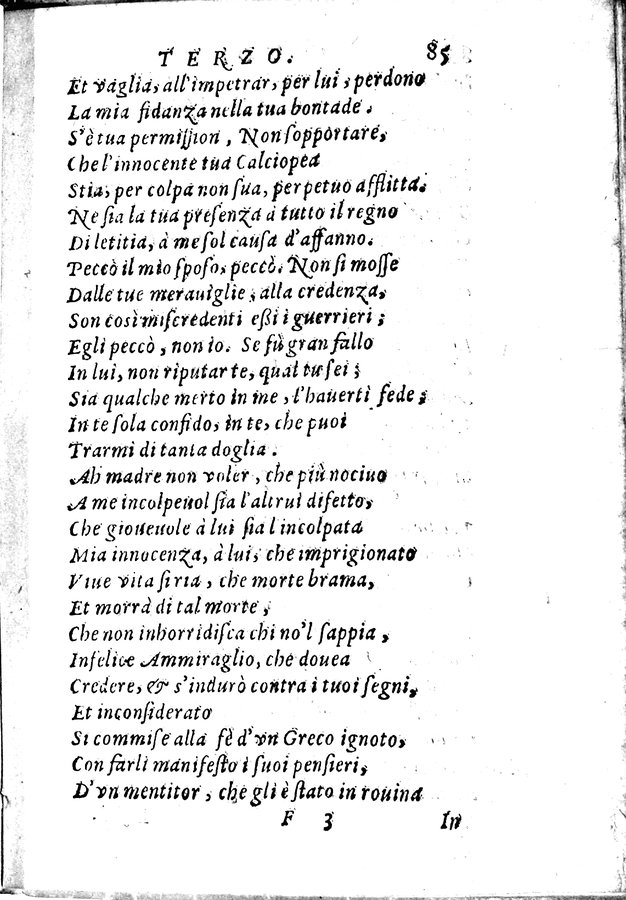 TERZO. 85
Et vaglia, all'impetrar, per lui, perdono
La mia fidanza nella tua bontade.
S'è tua permission, Non sopportare,
Che l'innocente tua Calciopea
Stia, per colpa non sua, perpetuo afflitta.
Ne sia la tua presenza a tutto il regno
Di letitia, à me sol causa d'affanno.
Peccò il mio sposo, peccò. Non si mosse
Dalle tue merauiglie, alla credenza,
Son così miscredenti eßi i guerrieri;
Egli peccò, non io. Se fù gran fallo
In lui, non riputar te, qual tu sei;
Sia qualche merto in me, l'hauerti fede;
In te sola confido, in te, che puoi
Trarmi di tanta doglia.
Ah madre non voler, che più nociuo
A me incolpeuol sia l'altrui difetto,
Che gioueuole à lui sia l'incolpata
Mia innocenza, à lui, che imprigionato
Viue vita siria, che morte brama,
Et morrà di tal morte,
Che non inhorridisca chi no'l sappia,
Infelice Ammiraglio, che douea
Credere, & s'indurò contra i tuoi segni,
Et inconsiderato
Si commise alla fè d'vn Greco ignoto,
Con farli manifesto i suoi pensieri,
D'vn mentitor, che gli è stato in rouina
F 3 In